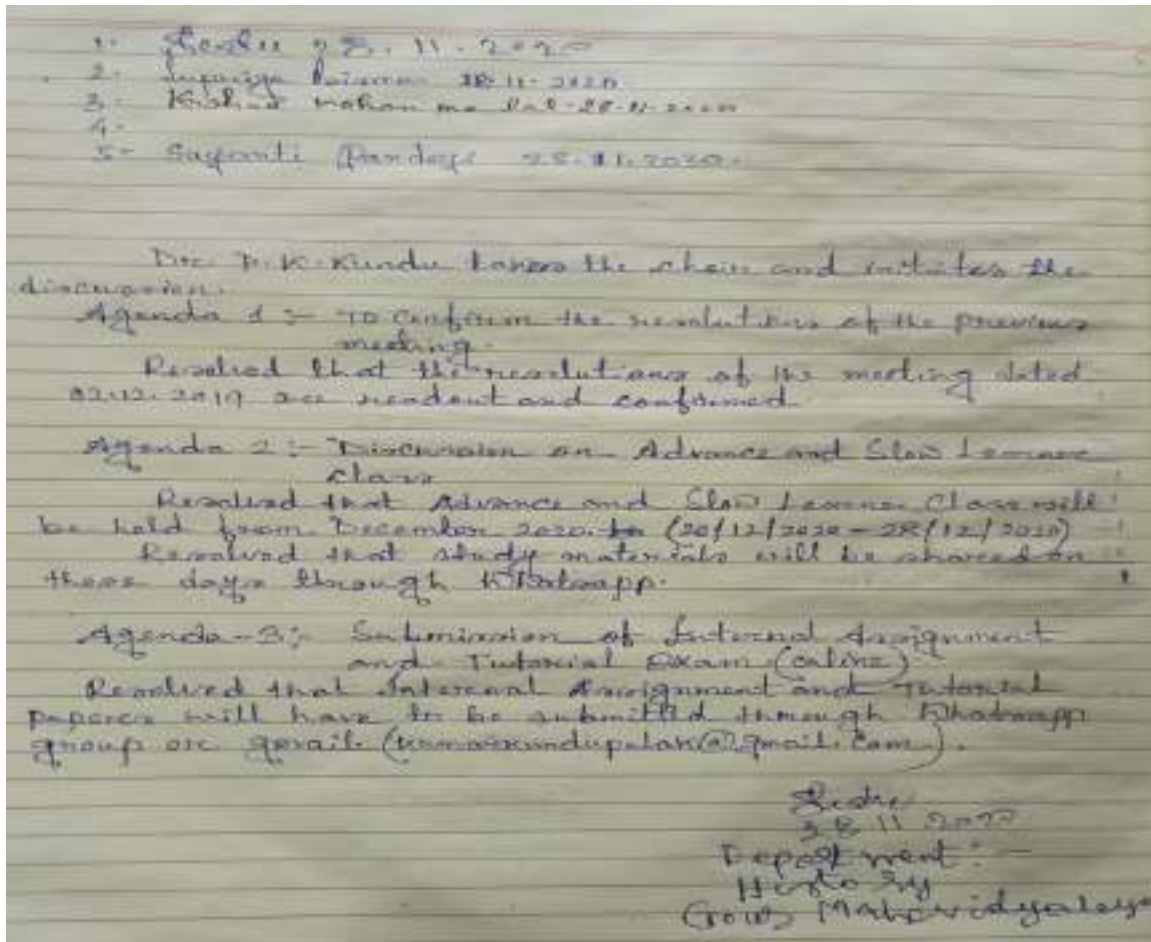 1.
28.11.2020
2. 28-11-2020
3. Kishor mohan 28-11-2020
4-
5- Sayanti Pandey 28.11.2020.
Dr. P. K. Kundu takes the chair and initiates the
discussion.
Agenda 1 :- To confirm the resolutions of the previous
meeting.
Resolved that the resolutions of the meeting dated
02.12.2019 are readout and confirmed.
Agenda 2 :- Discussion on Advance and Slow Learner
class
Resolved that Advance and Slow Learner Class will
be held from December 2020. (20/12/2020 - 28/12/2020)
Resolved that study materials will be shared on
these days through Whatsapp.
Agenda-3 :- Submission of Internal Assignment
and Tutorial Exam (online)
Resolved that Internal Assignment and Tutorial
papers will have to be submitted through Whatsapp
group or gmail.
28 11 2020
Department :-
History
Mahavidyalaya